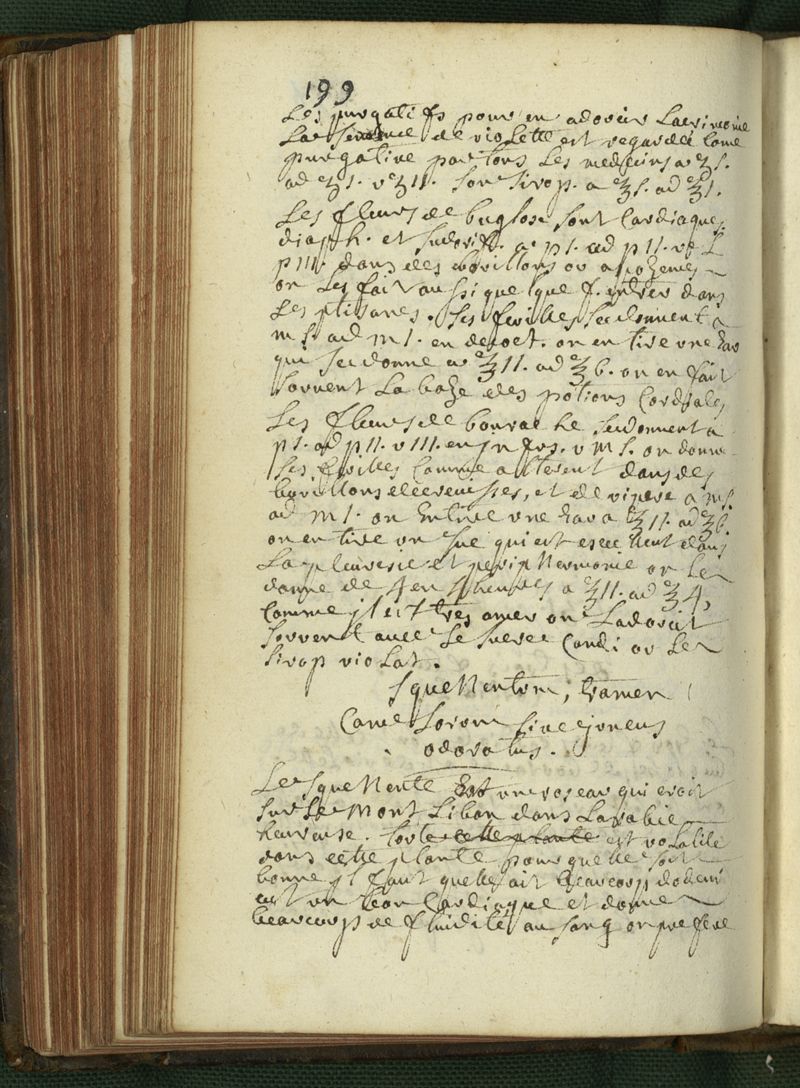 199
Les purgatifs pour en adoucir Lacrimonie
La semence de violette est regardée come
purgative par tous Les medecins a ʒ s.
ad ʒ 1. v ʒ 11. son sirop. a ℥ s. ad ℥ 1.
Les fleurs de buglose sont Cardiaque.
diaph. et sudorif. a p 1. ad p 11. v
p 111. dans des bouillons ou apozemes
on Les fait aussi quelque f. entrer dans
Les ptisanes. Ses feuilles se donnent a
m s. ad m 1. en decoct. on en tire une eau
qui se donne a ℥ 11. ad ℥ 6. on en fait
souvent La baze des potions Cordiales
Les fleurs de bourrache se donnent a
p 1. ad p 11. v 111. en infus. v m s. on donne
ses feuilles Comme alterent dans des
bouillons decrevisses, et de vipere a m s.
ad m 1. on En tire une eau a ℥ 11. ad ℥ 6.
on en tire un suc qui est excellent dans
La pleuresie et peripneumonie on Le
donne de 4 en 4 heures a ℥ 11. ad ℥ 4,
Comme il est tres amer on Ladoucit
souvent avec Le sucre Candi ou Le
sirop violat.
Squenentum, 
Camelorum sive juncus
odoratus.
Le squenente Est un roseau qui croit
sur Le Mont Liban dans Larabie
heureuse. toute cette plante est volatile
dans cette plante pour quelle soit
bonne il faut quelle ait beaucoup dodeur
est un bon Cardiaque et donne
beaucoup de fluidité au sang on prefere